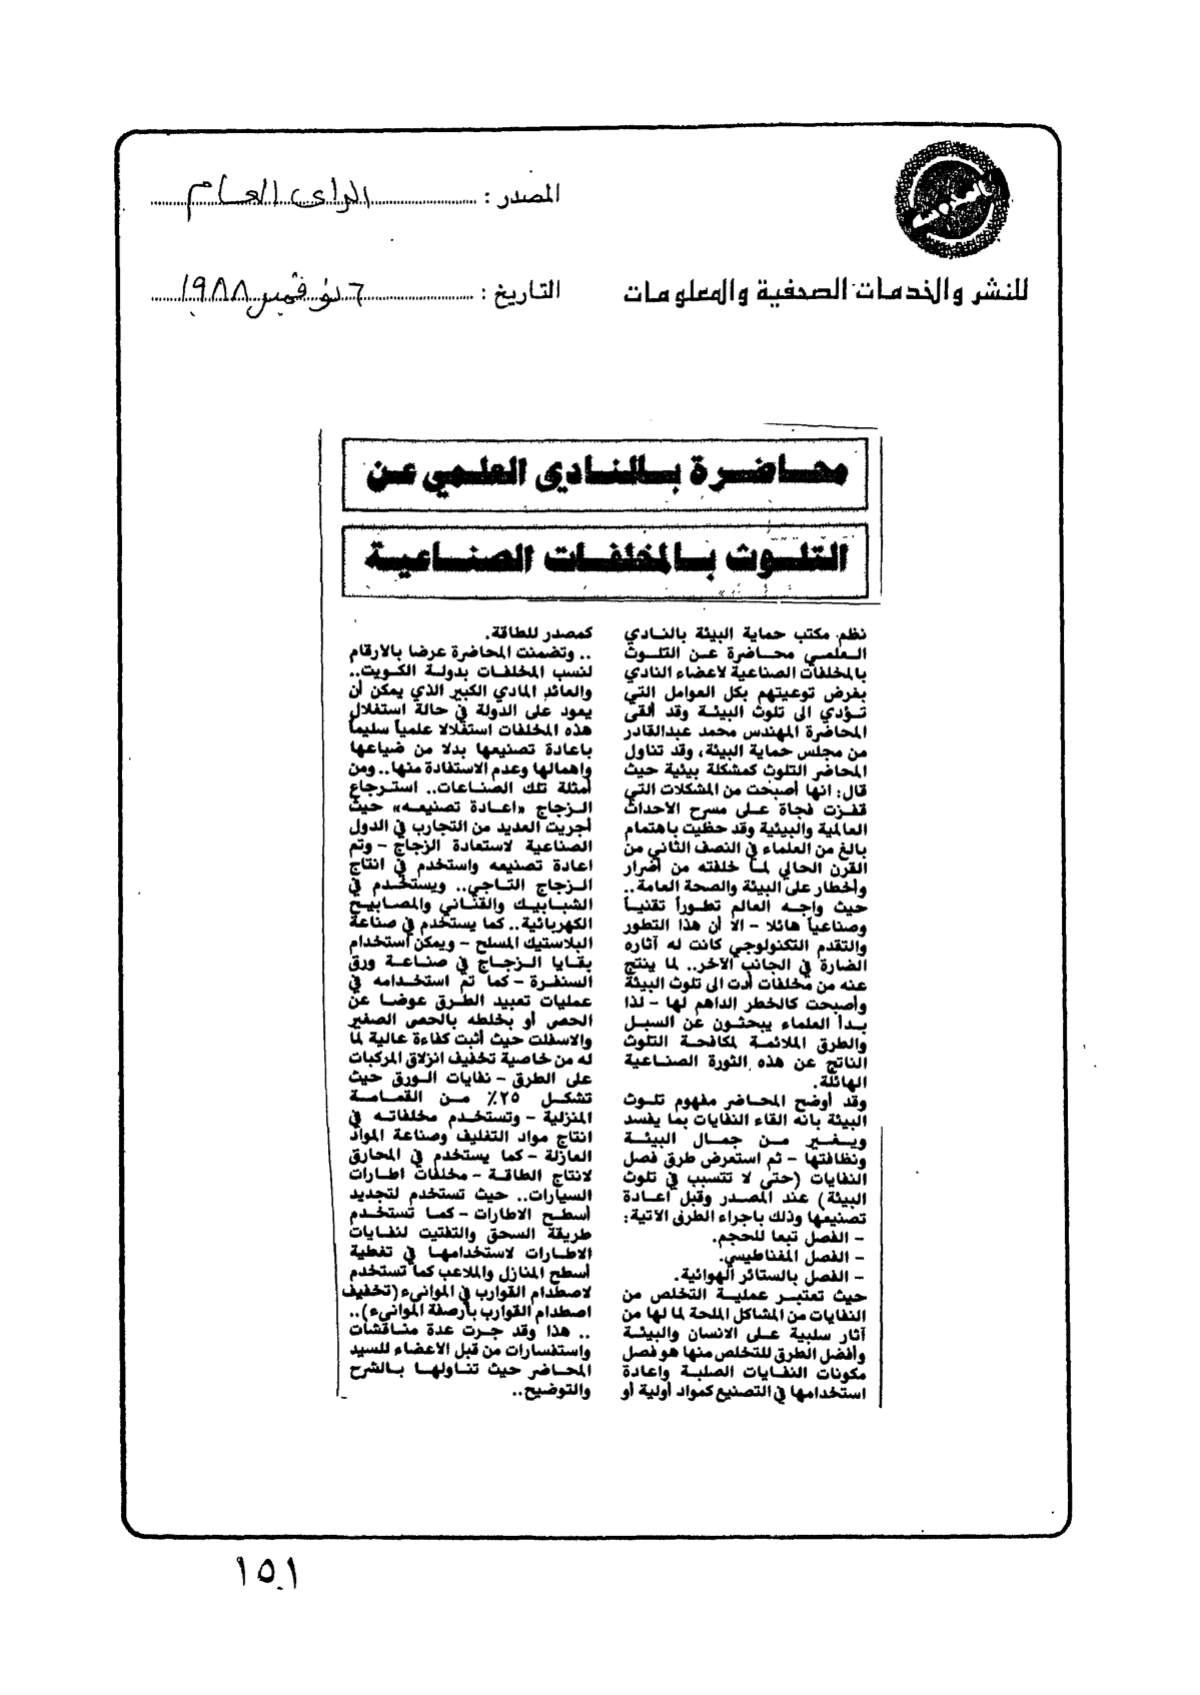 المصدر : الراى العام
التاريخ : ٦ نوفمبر ١٩٨٨
للنشر والخدمات الصحفية والمعلومات
محاضرة بالنادي العلمي عن
التلوث بالمخلفات الصناعية
نظم مكتب حماية البيئة بالنادي
العلمي محاضرة عن التلوث
بالمخلفات الصناعية لأعضاء النادي
بغرض توعيتهم بكل العوامل التي
تؤدي الى تلوث البيئة وقد ألقى
المحاضرة المهندس محمد عبدالقادر
من مجلس حماية البيئة، وقد تناول
المحاضر التلوث كمشكلة بيئية حيث
قال: انها أصبحت من المشكلات التي
قفزت فجأة على مسرح الأحداث
العالمية والبيئية وقد حظيت باهتمام
بالغ من العلماء في النصف الثاني من
القرن الحالي لما خلفته من أضرار
وأخطار على البيئة والصحة العامة..
حيث واجه العالم تطوراً تقنياً
وصناعياً هائلا - الا أن هذا التطور
والتقدم التكنولوجي كانت له آثاره
الضارة في الجانب الآخر.. لما ينتج
عنه من مخلفات أدت الى تلوث البيئة
وأصبحت كالخطر الداهم لها - لذا
بدأ العلماء يبحثون عن السبل
والطرق الملائمة لمكافحة التلوث
الناتج عن هذه الثورة الصناعية
الهائلة.
وقد أوضح المحاضر مفهوم تلوث
البيئة بأنه القاء النفايات بما يفسد
ويغير من جمال البيئة
ونظافتها - ثم استعرض طرق فصل
النفايات (حتى لا تتسبب في تلوث
البيئة) عند المصدر وقبل اعادة
تصنيعها وذلك باجراء الطرق الآتية:
- الفصل تبعا للحجم.
- الفصل المغناطيسي.
- الفصل بالستائر الهوائية.
حيث تعتبر عملية التخلص من
النفايات من المشاكل الملحة لما لها من
آثار سلبية على الانسان والبيئة
وأفضل الطرق للتخلص منها هو فصل
مكونات النفايات الصلبة واعادة
استخدامها في التصنيع كمواد أولية أو
كمصدر للطاقة.
.. وتضمنت المحاضرة عرضا بالأرقام
لنسب المخلفات بدولة الكويت..
والعائد المادي الكبير الذي يمكن أن
يعود على الدولة في حالة استغلال
هذه المخلفات استغلالا علمياً سليماً
باعادة تصنيعها بدلا من ضياعها
واهمالها وعدم الاستفادة منها.. ومن
أمثلة تلك الصناعات.. استرجاع
الزجاج «اعادة تصنيعه» حيث
أجريت العديد من التجارب في الدول
الصناعية لاستعادة الزجاج - وتم
اعادة تصنيعه واستخدم في انتاج
الزجاج التاجي.. ويستخدم في
الشبابيك والقناني والمصابيح
الكهربائية.. كما يستخدم في صناعة
البلاستيك المسلح - ويمكن استخدام
بقايا الزجاج في صناعة ورق
السنفرة - كما تم استخدامه في
عمليات تعبيد الطرق عوضا عن
الحصى أو بخلطه بالحصى الصغير
والاسفلت حيث أثبت كفاءة عالية لما
له من خاصية تخفيف انزلاق المركبات
على الطرق - نفايات الورق حيث
تشكل ٢٥٪ من القمامة
المنزلية - وتستخدم مخلفاته في
انتاج مواد التغليف وصناعة المواد
العازلة - كما يستخدم في المحارق
لانتاج الطاقة - مخلفات اطارات
السيارات.. حيث تستخدم لتجديد
أسطح الاطارات - كما تستخدم
طريقة السحق والتفتيت لنفايات
الاطارات لاستخدامها في تغطية
أسطح المنازل والملاعب كما تستخدم
لاصطدام القوارب في الموانىء (تخفيف
اصطدام القوارب بأرصفة الموانىء)..
.. هذا وقد جرت عدة مناقشات
واستفسارات من قبل الاعضاء للسيد
المحاضر حيث تناولها بالشرح
والتوضيح..
١٥٠١